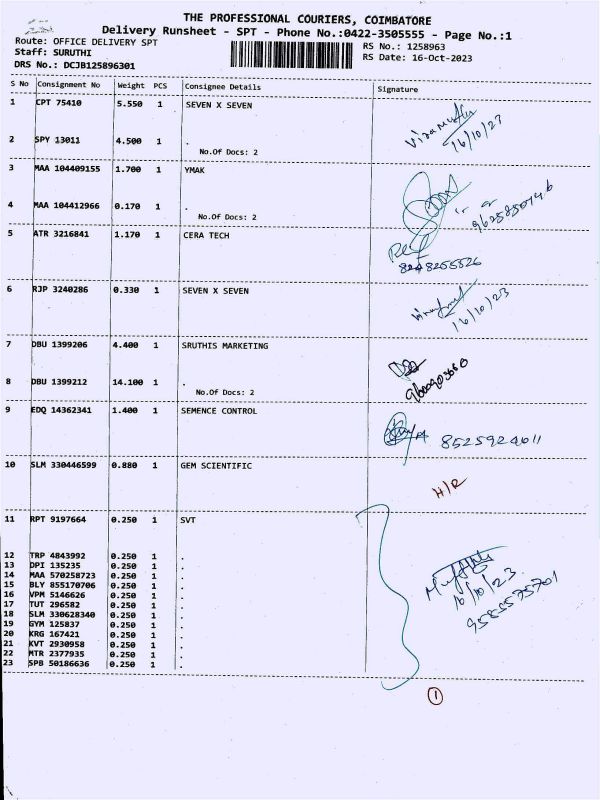 THE PROFESSIONAL COURIERS, COIMBATORE
Delivery Runsheet - SPT - Phone No.:0422-3505555 - Page No.:1
Route: OFFICE DELIVERY SPT
RS No.: 1258963
Staff: SURUTHI
RS Date: 16-Oct-2023
DRS No.: DCJB125896301
S No Consignment No Weight PCS Consignee Details Signature
1 CPT 75410 5.550 1 SEVEN X SEVEN
16/10/23
2 SPY 13011 4.500 1 .
No.Of Docs: 2
3 MAA 104409155 1.700 1 YMAK
4 MAA 104412966 0.170 1 .
No.Of Docs: 2
5 ATR 3216841 1.170 1 CERA TECH
6 RJP 3240286 0.330 1 SEVEN X SEVEN
16/10/23
7 DBU 1399206 4.400 1 SRUTHIS MARKETING
8 DBU 1399212 14.100 1 .
No.Of Docs: 2
9 EDQ 14362341 1.400 1 SEMENCE CONTROL
10 SLM 330446599 0.880 1 GEM SCIENTIFIC
H/R
11 RPT 9197664 0.250 1 SVT
12 TRP 4843992 0.250 1 .
13 DPI 135235 0.250 1 .
14 MAA 570258723 0.250 1 .
15 BLY 855170706 0.250 1 .
16 VPM 5146626 0.250 1 .
17 TUT 296582 0.250 1 .
18 SLM 330628340 0.250 1 .
19 GYM 125837 0.250 1 .
20 KRG 167421 0.250 1 .
21 KVT 2930958 0.250 1 .
22 MTR 2377935 0.250 1 .
23 SPB 50186636 0.250 1 .
16/10/23
9585575701
1